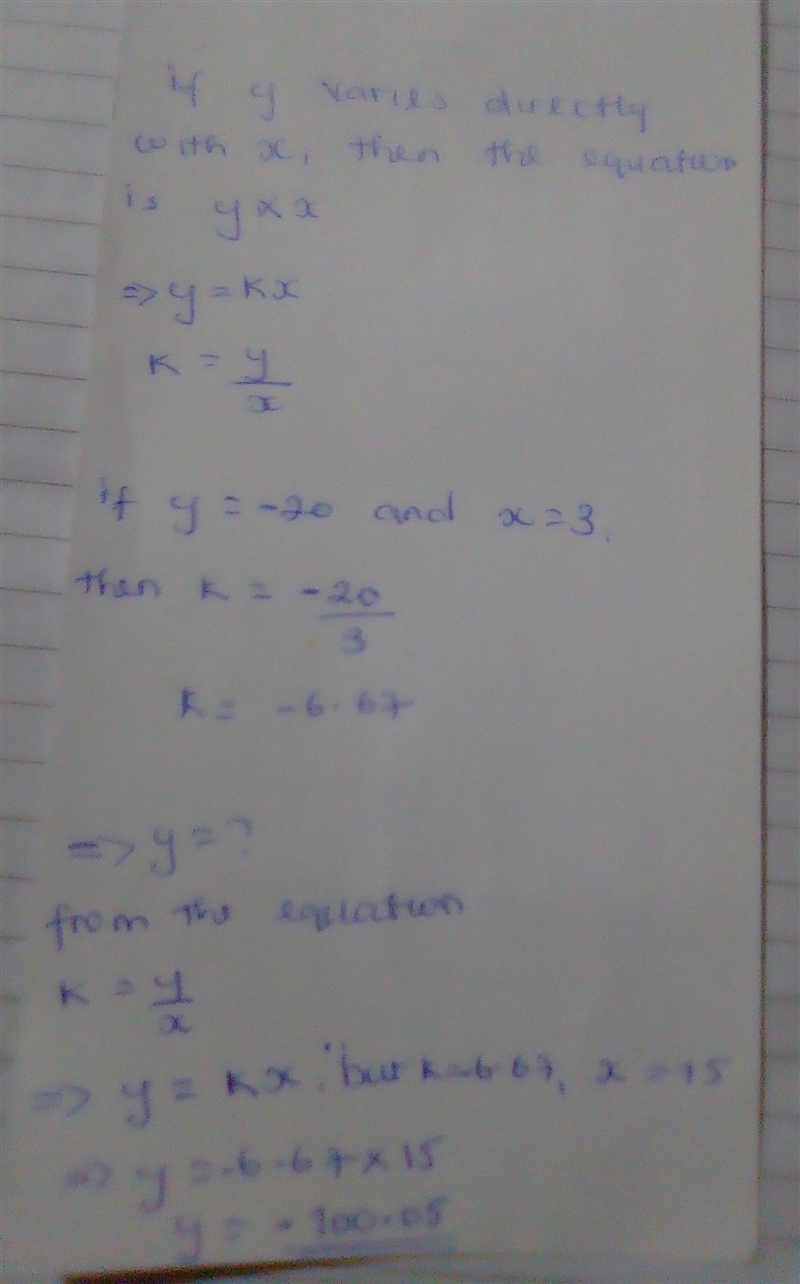 if y varies directly
with x, then the equation
is y ∝ x
=> y = kx
k = y/x
if y = -20 and x = 3.
then k = -20/3
k = -6.67
=> y = ?
from the equation
k = y/x
=> y = kx. but k = -6.67, x = 15
=> y = -6.67 x 15
y = -100.05